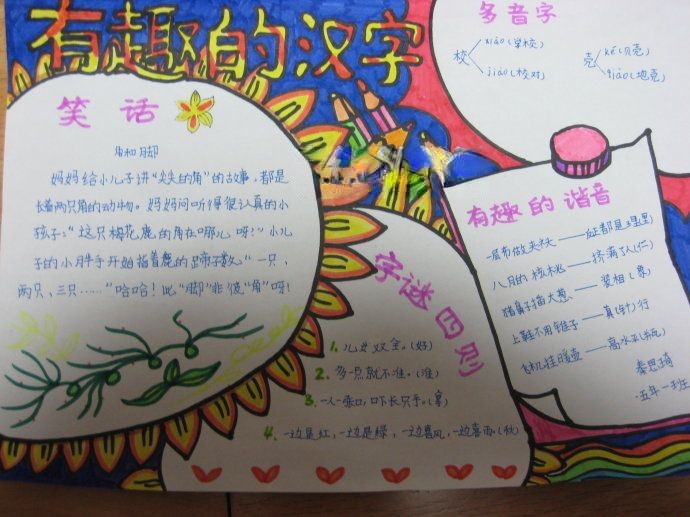 有趣的汉字
笑话
角和脚
妈妈给小儿子讲“尖尖的角”的故事，都是
长着两只角的动物。妈妈问听得很认真的小
孩子：“这只梅花鹿的角在哪儿呀？”小儿
子的小胖手开始指着鹿的蹄子数。“一只，
两只，三只……”哈哈！此“脚”非彼“角”呀！
多音字
校 xiào(学校) jiào(校对)
壳 ké(贝壳) qiào(地壳)
有趣的谐音
一层布做夹袄——
八月的核桃——挤满了人(仁)
猪鼻子插大葱——装相(象)
上鞋不用锥子——真(针)行
飞机挂暖壶——高水平(瓶)
五年一班
字谜四则
1. 儿女双全。(好)
2. 多一点就不准。(准)
3. 一人一张口，口下长只手。(拿)
4. 一边是红，一边是绿，一边喜风，一边喜雨。(秋)